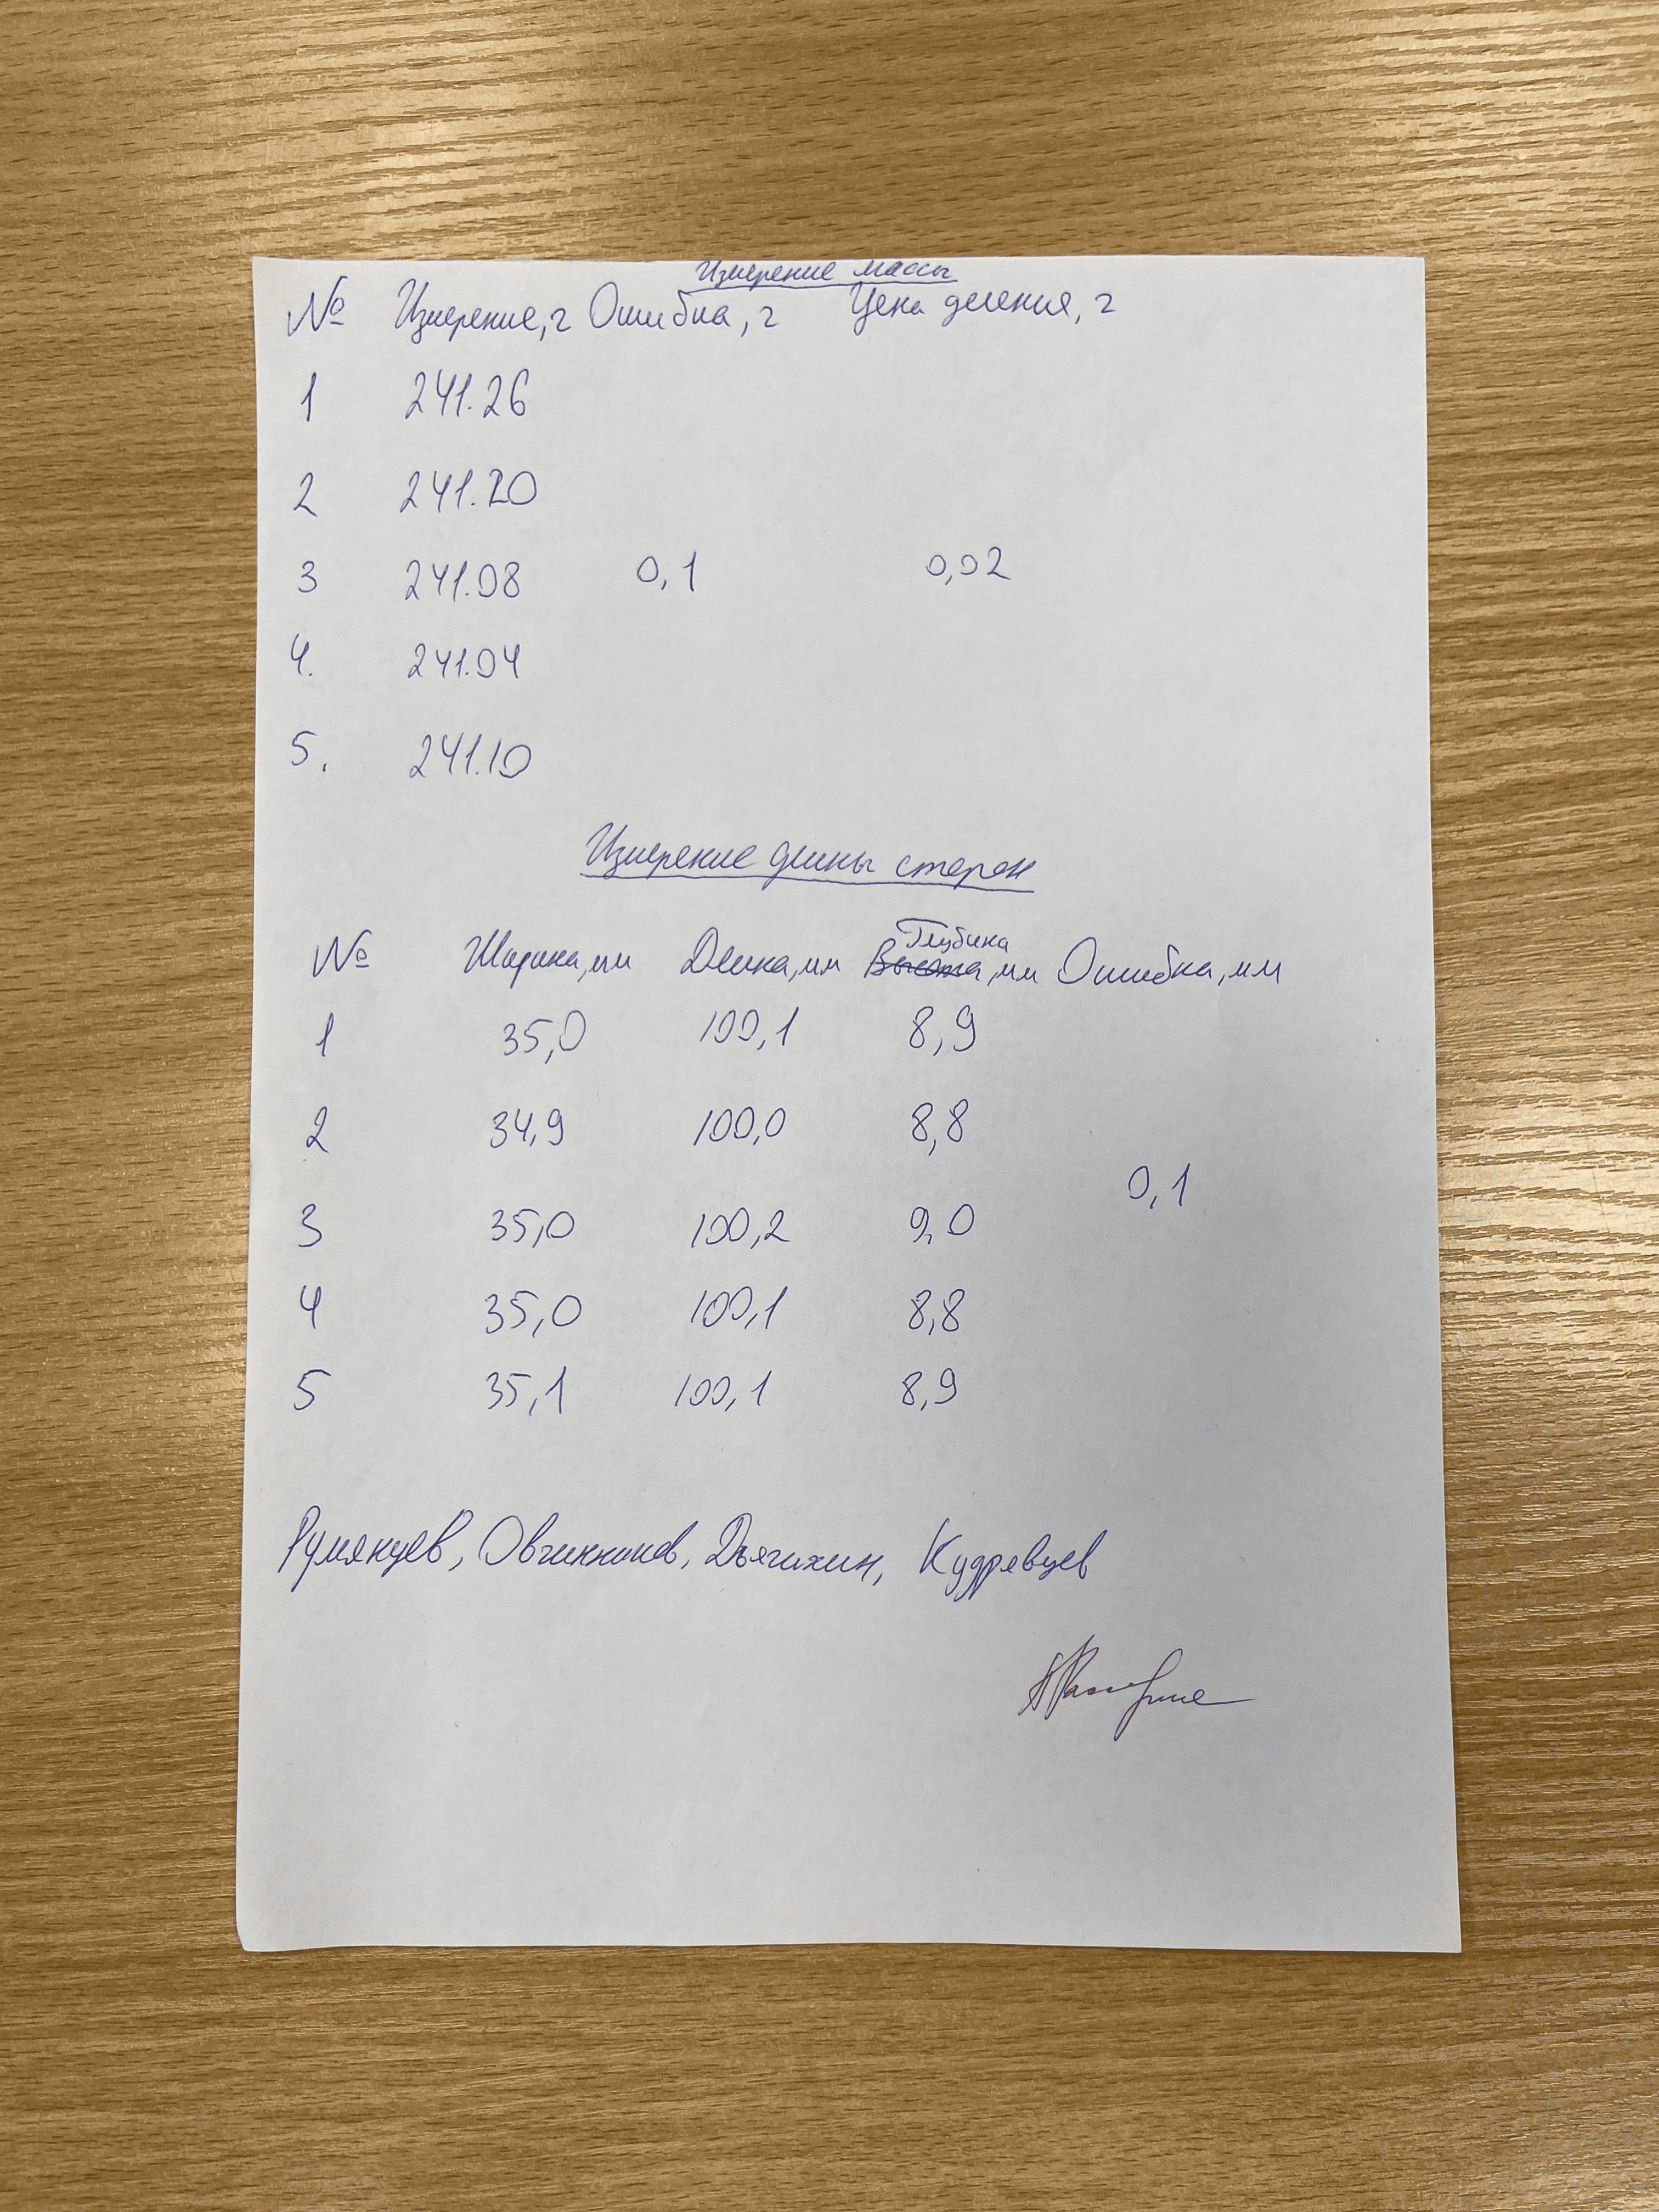 Измерение массы
№ Измерение, г Ошибка, г Цена деления, г
1 241.26
2 241.20
3 241.08 0,1 0,02
4. 241.04
5. 241.10
Измерение длины сторон
Глубина
№ Ширина, мм Длина, мм Высота, мм Ошибка, мм
1 35,0 100,1 8,9
2 34,9 100,0 8,8
0,1
3 35,0 100,2 9,0
4 35,0 100,1 8,8
5 35,1 100,1 8,9
Румянцев, Овчинников, Дьячихин, Кудрявцев